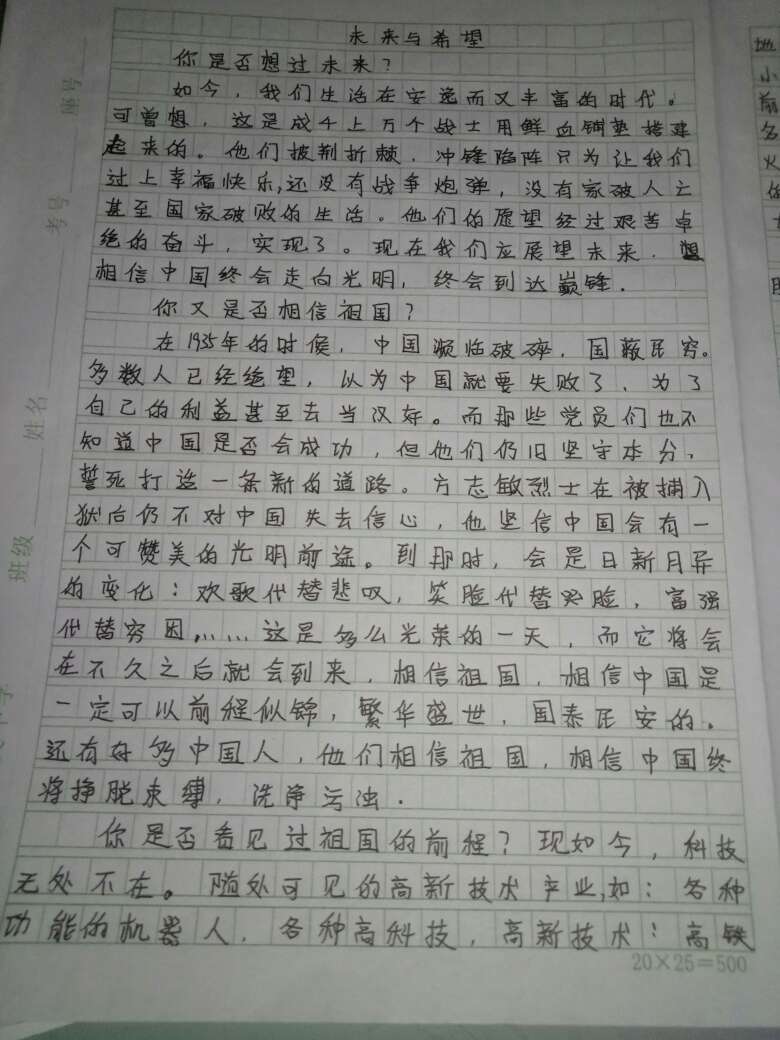 未来与希望
你是否想过未来？
如今，我们生活在安逸而又丰富的时代。
可曾想，这是成千上万个战士用鲜血铺垫搭建
起来的。他们披荆折棘，冲锋陷阵只为让我们
过上幸福快乐,还没有战争炮弹，没有家破人亡
甚至国家破败的生活。他们的愿望经过艰苦卓
绝的奋斗，实现了。现在我们应展望未来，
相信中国终会走向光明，终会到达巅锋．
你又是否相信祖国？
在1935年的时候，中国濒临破碎，国蔽民穷。
多数人已经绝望，以为中国就要失败了，为了
自己的利益甚至去当汉奸。而那些党员们也不
知道中国是否会成功，但他们仍旧坚守本分，
誓死打造一条新的道路。方志敏烈士在被捕入
狱后仍不对中国失去信心，他坚信中国会有一
个可赞美的光明前途。到那时，会是日新月异
的变化：欢歌代替悲叹，笑脸代替哭脸，富强
代替穷困……这是多么光荣的一天，而它将会
在不久之后就会到来，相信祖国，相信中国是
一定可以前程似锦，繁华盛世，国泰民安的。
还有好多中国人，他们相信祖国，相信中国终
将挣脱束缚，洗净污浊．
你是否看见过祖国的前程？现如今，科技
无处不在。随处可见的高新技术产业,如：各种
功能的机器人，各种高科技，高新技术：高铁
20×25＝500
座号
考号
姓名
班级
地
小
前
名
火
的